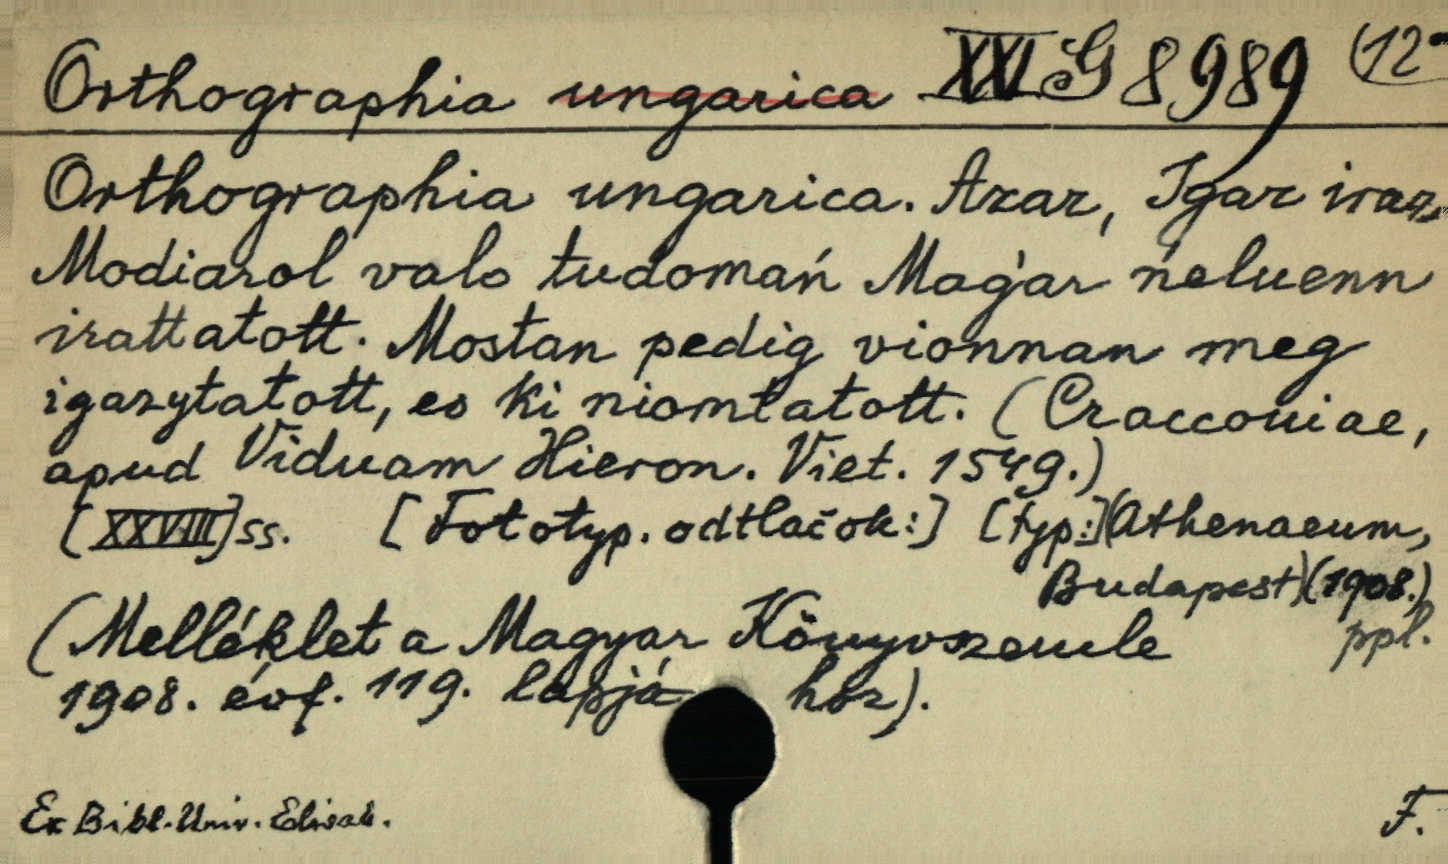 Orthographia ungarica XXI G 8989 (12-
Orthographia ungarica. Azar, Igaz iraz,
Modiarol valo tudomań Maǵar ńeluenn
irattatott. Mostan pedig vionnan meg
igazytatott, es ki niomtatott. (Cracconiae,
apud Viduam Hieron. Viet. 1549.)
[XXVIII] ss. [Fototyp. odtlačok:] [typ:] (Athenaeum,
Budapest) (1908.)
(Melléklet a Magyar Könyvszemle ppl.
1908. évf. 119. lapjához).
Ex Bibl. Univ. Elisab. F.